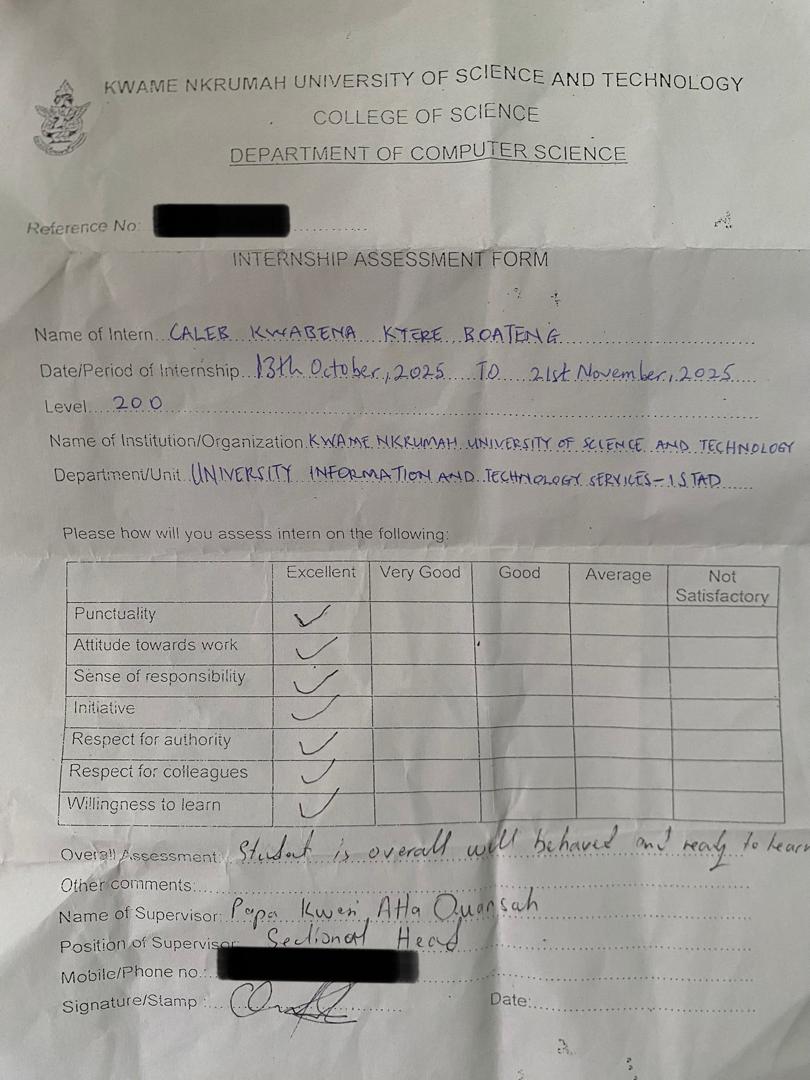 KWAME NKRUMAH UNIVERSITY OF SCIENCE AND TECHNOLOGY
COLLEGE OF SCIENCE
DEPARTMENT OF COMPUTER SCIENCE
Reference No:
INTERNSHIP ASSESSMENT FORM
Name of Intern CALEB KWABENA KYERE BOATENG
Date/Period of Internship 13th October, 2025 TO 21st November, 2025
Level 200
Name of Institution/Organization KWAME NKRUMAH UNIVERSITY OF SCIENCE AND TECHNOLOGY
Department/Unit UNIVERSITY INFORMATION AND TECHNOLOGY SERVICES - ISTAD
Please how will you assess intern on the following:
Excellent Very Good Good Average Not Satisfactory
Punctuality ✓
Attitude towards work ✓
Sense of responsibility ✓
Initiative ✓
Respect for authority ✓
Respect for colleagues ✓
Willingness to learn ✓
Overall Assessment: Student is overall well behaved and ready to learn
Other comments:
Name of Supervisor: Papa Kwesi Atta Quansah
Position of Supervisor: Sectional Head
Mobile/Phone no.:
Signature/Stamp :
Date: